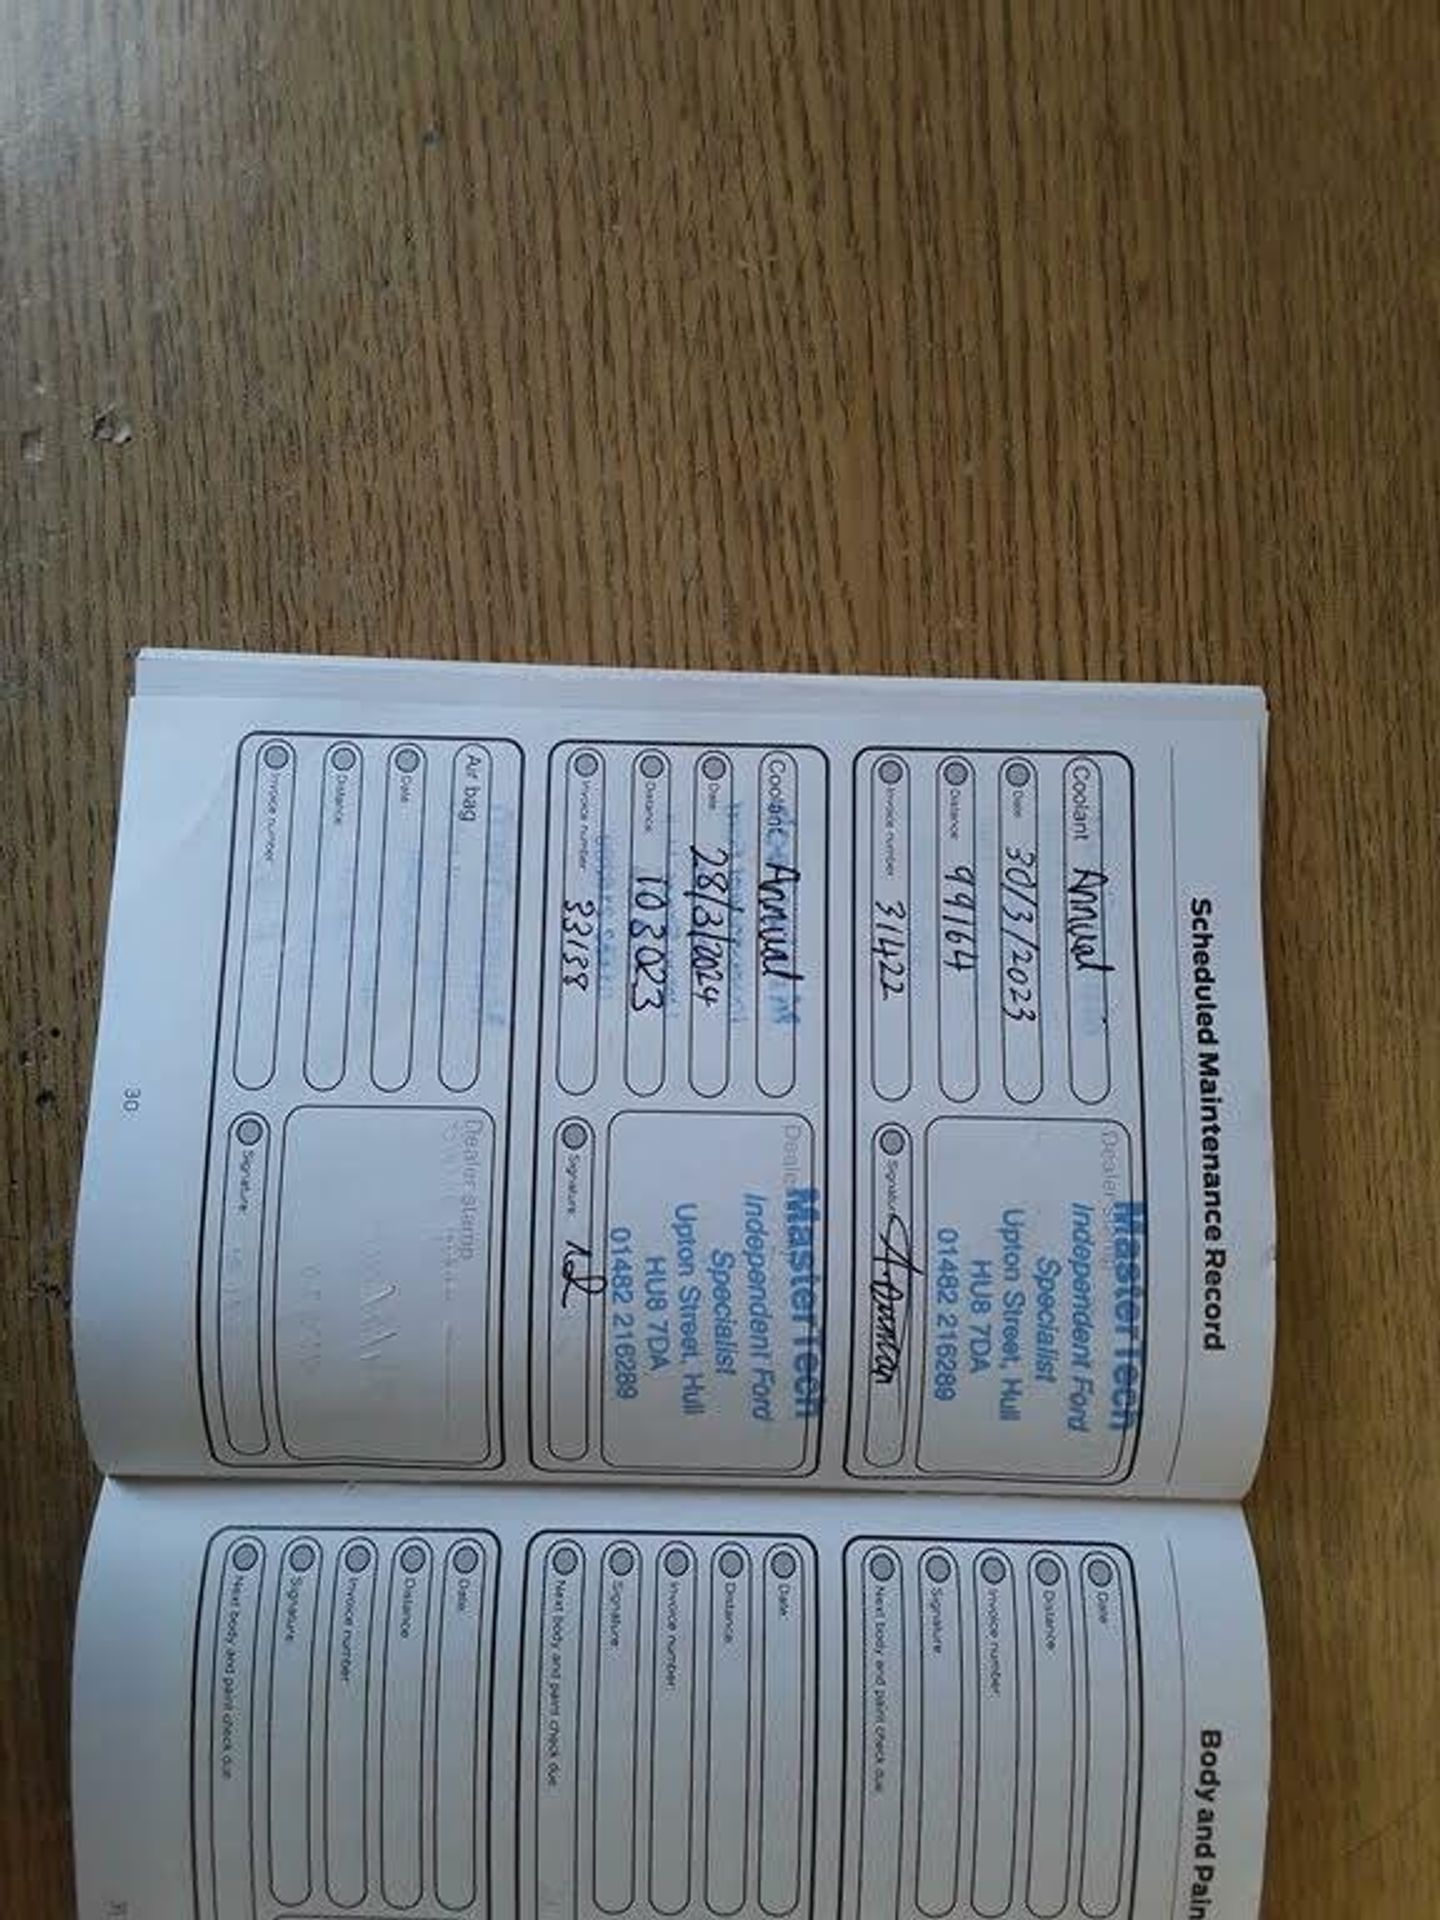 Scheduled Maintenance Record
Coolant Annual
Date 30/3/2023
Distance 99164
Invoice number 31422
Dealer
MasterTech
Independent Ford
Specialist
Upton Street, Hull
HU8 7DA
01482 216289
Signature
Coolant Annual
Date 28/3/2024
Distance 103023
Invoice number 33138
Dealer
MasterTech
Independent Ford
Specialist
Upton Street, Hull
HU8 7DA
01482 216289
Signature
Air bag
Date
Distance
Invoice number
Dealer stamp
Signature
30
Body and Pain
Date
Distance
Invoice number
Signature
Next body and paint check due
Date
Distance
Invoice number
Signature
Next body and paint check due
Date
Distance
Invoice number
Signature
Next body and paint check due